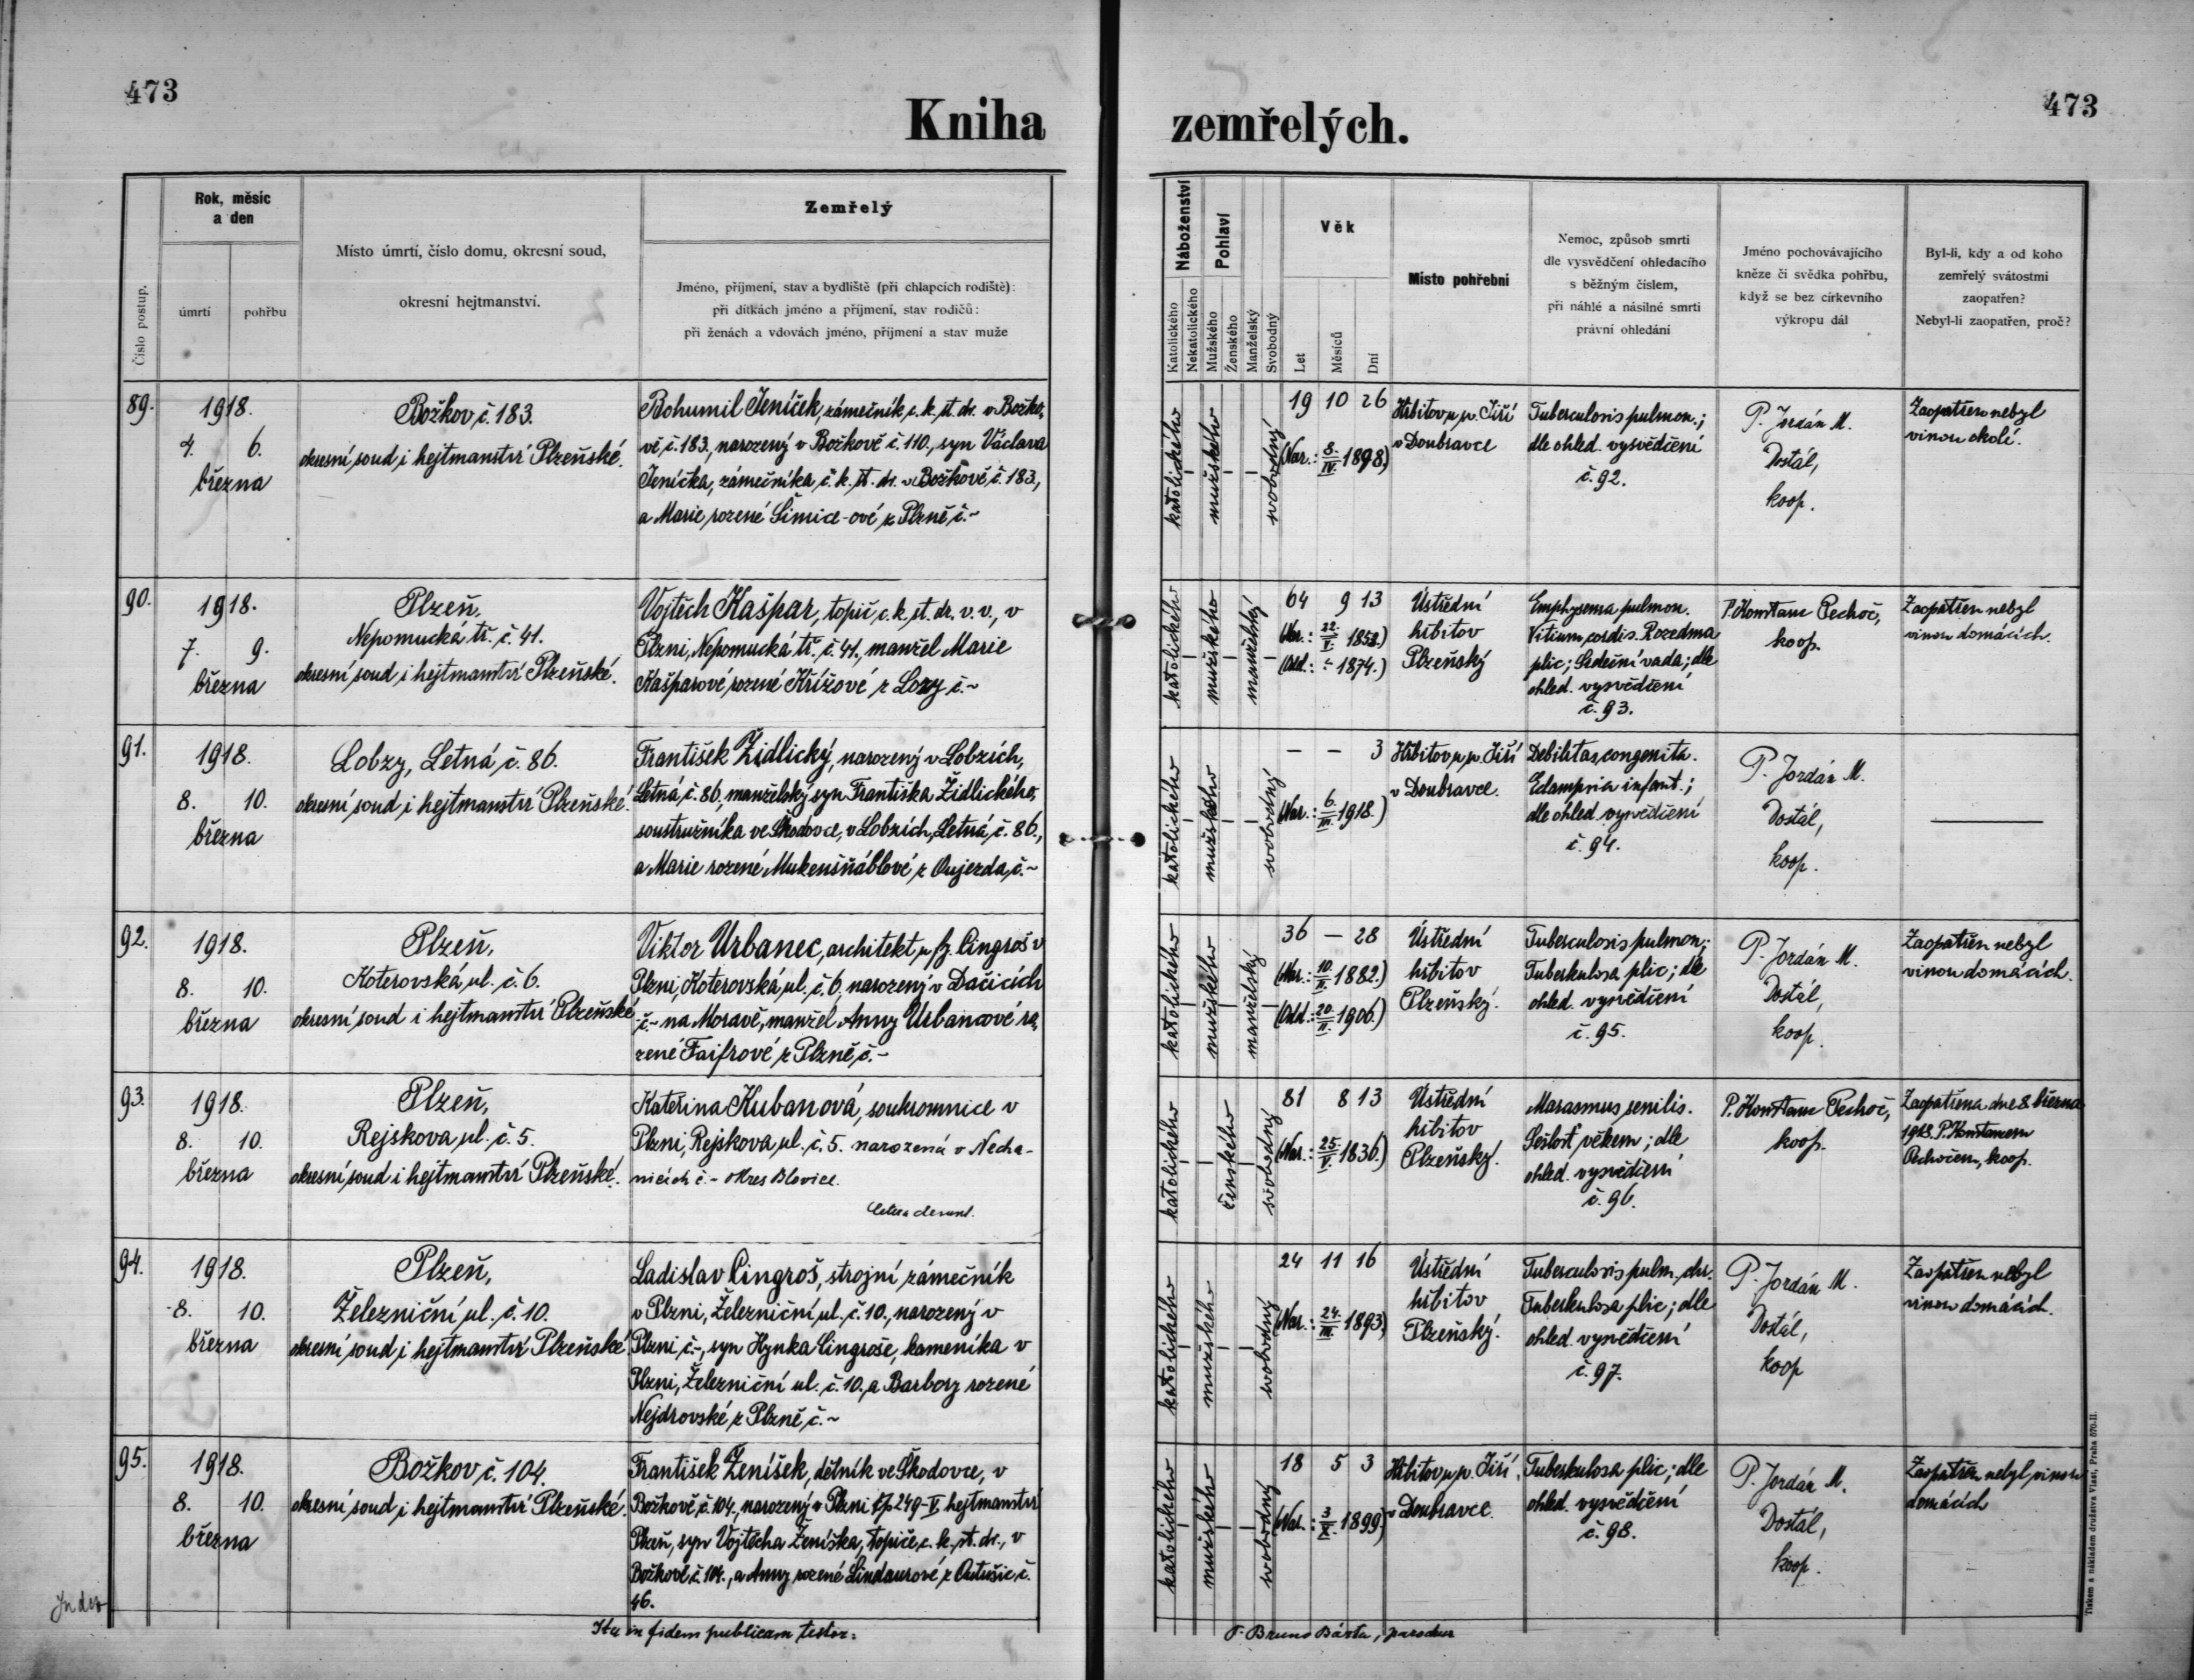 473
473
Kniha zemřelých.
Číslo postup.
Rok, měsíc
a den
úmrtí
pohřbu
Místo úmrtí, číslo domu, okresní soud,
okresní hejtmanství.
Zemřelý
Jméno, příjmení, stav a bydliště (při chlapcích rodiště):
při dítkách jméno a příjmení, stav rodičů:
při ženách a vdovách jméno, příjmení a stav muže
Náboženství
Katolického
Nekatolického
Pohlaví
Mužského
Ženského
Manželský
Svobodný
Věk
Let
Měsíců
Dní
Místo pohřební
Nemoc, způsob smrti
dle vysvědčení ohledacího
s běžným číslem,
při náhlé a násilné smrti
právní ohledání
Jméno pochovávajícího
kněze či svědka pohřbu,
když se bez církevního
výkropu dál
Byl-li, kdy a od koho
zemřelý svátostmi
zaopatřen?
Nebyl-li zaopatřen, proč?
89.
1918.
4. 6.
března
Božkov č. 183.
okresní soud i hejtmanství Plzeňské.
Bohumil Jeníček, zámečník c. k. st. dr. v Božko-
vě č. 183., narozený v Božkově č. 110., syn Václava
Jeníčka, zámečníka c. k. st. dr. v Božkově č. 183.,
a Marie rozené Šimice-ové z Plzně č. ~
katolického
mužského
svobodný
19 10 26
(Nar.: 8./IV. 1898)
Hřbitov u sv. Jiří
v Doubravce
Tuberculosis pulmon.;
dle ohled. vysvědčení
č. 92.
P. Jordán M.
Dostál,
koop.
Zaopatřen nebyl
vinou okolí.
90.
1918.
7. 9.
března
Plzeň,
Nepomucká tř. č. 41.
okresní soud i hejtmanství Plzeňské.
Vojtěch Kašpar, topič c. k. st. dr. v. v., v
Plzni, Nepomucká tř. č. 41., manžel Marie
Kašparové rozené Křížové z Lozy č. ~
katolického
mužského
manželský
64 9 13
(Nar.: 22./V. 1853.)
(Odd.: ~ 1874.)
Ústřední
hřbitov
Plzeňský
Emphysema pulmon.
Vitium cordis. Rozedma
plic; Srdeční vada; dle
ohled. vysvědčení
č. 93.
P. Konstanc Pechoč,
koop.
Zaopatřen nebyl
vinou domácích.
91.
1918.
8. 10.
března
Lobzy, Letná č. 86.
okresní soud i hejtmanství Plzeňské.
František Židlický, narozený v Lobzích,
Letná č. 86, manželský syn Františka Židlického,
soustružníka ve Škodovce, v Lobzích, Letná č. 86.,
a Marie rozené Mukenšňáblové z Oujezda, č. ~
katolického
mužského
svobodný
— — 3
(Nar.: 6./III. 1918.)
Hřbitov u sv. Jiří
v Doubravce.
Debilitas congenita.
Eclampsia infant.;
dle ohled. vysvědčení
č. 94.
P. Jordán M.
Dostál,
koop.
92.
1918.
8. 10.
března
Plzeň,
Koterovská ul. č. 6.
okresní soud i hejtmanství Plzeňské
Viktor Urbanec, architekt u fy. Cingroš v
Plzni, Koterovská ul. č. 6, narozený v Dačicích
č. – na Moravě, manžel Anny Urbancové ro-
zené Faifrové z Plzně, č. –
katolického
mužského
manželský
36 — 28
(Nar.: 10./II. 1882.)
(Odd.: 20./II. 1906.)
Ústřední
hřbitov
Plzeňský.
Tuberculosis pulmon.;
Tuberkulosa plic; dle
ohled. vysvědčení
č. 95.
P. Jordán M.
Dostál,
koop.
Zaopatřen nebyl
vinou domácích.
93.
1918.
8. 10.
března
Plzeň,
Rejskova ul. č. 5.
okresní soud i hejtmanství Plzeňské.
Kateřina Kubanová, soukromnice v
Plzni, Rejskova ul. č. 5. narozená v Necha-
nicích č. – okres Blovice.
Cetera desunt.
katolického
ženského
svobodný
81 8 13
(Nar.: 25./V. 1836.)
Ústřední
hřbitov
Plzeňský.
Marasmus senilis.
Sešlost věkem; dle
ohled. vysvědčení
č. 96.
P. Konstanc Pechoč,
koop.
Zaopatřena dne 8. března
1918. P. Konstancem
Pechočem, koop.
94.
1918.
8. 10.
března
Plzeň,
Železniční ul. č. 10.
okresní soud i hejtmanství Plzeňské.
Ladislav Cingroš, strojní zámečník
v Plzni, Železniční ul. č. 10., narozený v
Plzni č. –, syn Hynka Cingroše, kameníka v
Plzni, Železniční ul. č. 10., a Barbory rozené
Nejdrovské z Plzně, č. ~
katolického
mužského
svobodný
24 11 16
(Nar.: 24./III. 1893)
Ústřední
hřbitov
Plzeňský.
Tuberculosis pulm. chr.
Tuberkulosa plic; dle
ohled. vysvědčení
č. 97.
P. Jordán M.
Dostál,
koop
Zaopatřen nebyl
vinou domácích.
95.
1918.
8. 10.
března
Božkov č. 104.
okresní soud i hejtmanství Plzeňské.
František Ženíšek, dělník ve Škodovce, v
Božkově č. 104., narozený v Plzni čp. 249-V. hejtmanství
Plzeň, syn Vojtěcha Ženíška, topiče c. k. st. dr., v
Božkově č. 104., a Anny rozené Lindaurové z Outušic č.
46.
katolického
mužského
svobodný
18 5 3
(Nar.: 3/X. 1899.)
Hřbitov u sv. Jiří
v Doubravce.
Tuberkulosa plic; dle
ohled. vysvědčení
č. 98.
P. Jordán M.
Dostál,
koop.
Zaopatřen nebyl vinou
domácích
Ita in fidem publicam testor:
P. Bruno Bárta, parochus
Tiskem a nákladem družstva Vlast, Praha 570-II.